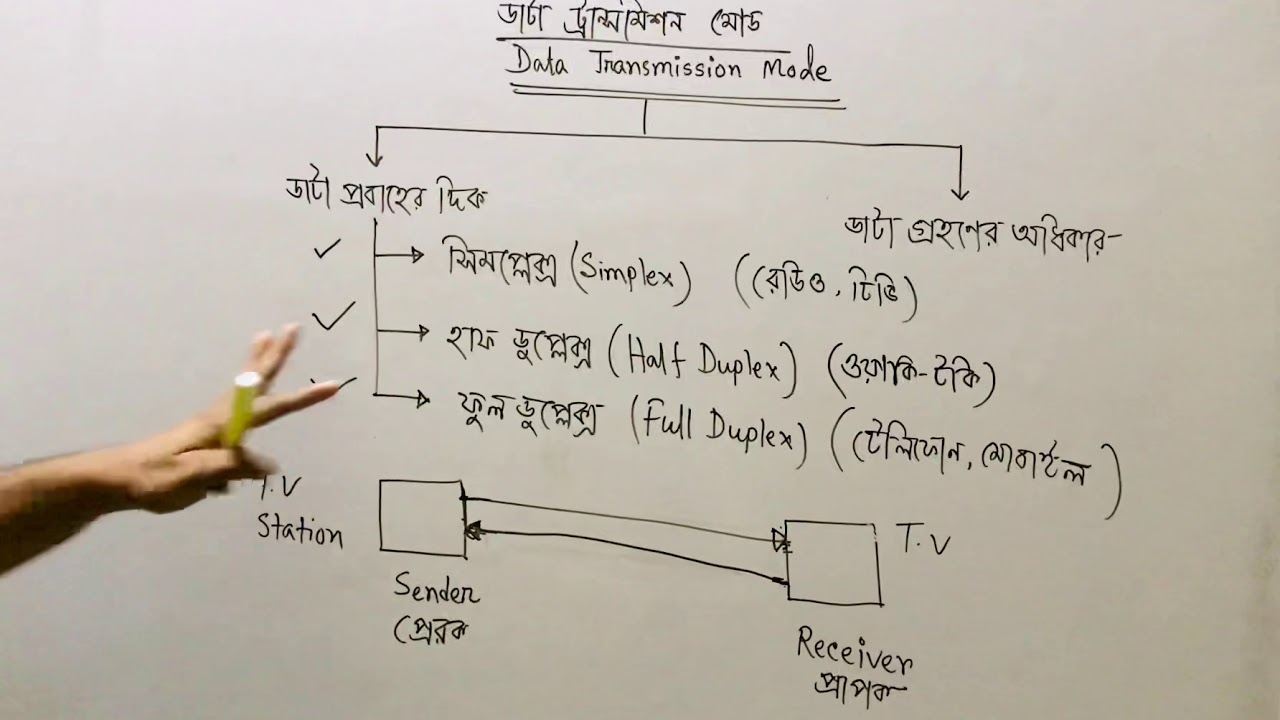 ডাটা ট্রান্সমিশন মোড
Data Transmission Mode
ডাটা প্রবাহের দিক
ডাটা গ্রহণের অধিকার
সিমপ্লেক্স (Simplex) (রেডিও, টিভি)
হাফ ডুপ্লেক্স (Half Duplex) (ওয়াকি-টকি)
ফুল ডুপ্লেক্স (Full Duplex) (টেলিফোন, মোবাইল)
T.V
Station
T.V
Sender
প্রেরক
Receiver
প্রাপক